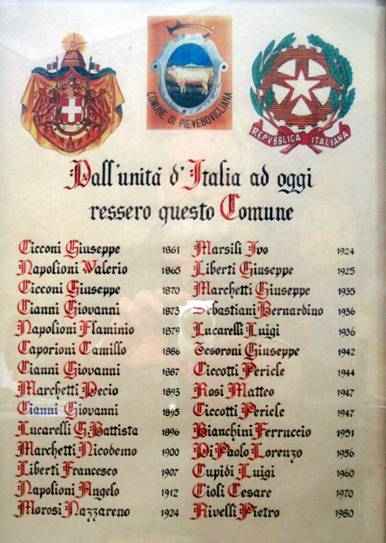 COMUNE DI PIEVEBOVIGLIANA
REPVBBLICA ITALIANA
Dall'unità d'Italia ad oggi
ressero questo Comune
Cicconi Giuseppe 1861
Napolioni Valerio 1865
Cicconi Giuseppe 1870
Cianni Giovanni 1873
Napolioni Flaminio 1879
Caporioni Camillo 1886
Cianni Giovanni 1887
Marchetti Decio 1893
Cianni Giovanni 1895
Lucarelli G.Battista 1896
Marchetti Nicodemo 1900
Liberti Francesco 1907
Napolioni Angelo 1912
Morosi Nazzareno 1924
Marsili Ivo 1924
Liberti Giuseppe 1925
Marchetti Giuseppe 1935
Sebastiani Bernardino 1936
Lucarelli Luigi 1936
Tesoroni Giuseppe 1942
Ciccotti Pericle 1944
Rosi Matteo 1947
Ciccotti Pericle 1947
Bianchini Ferruccio 1951
Di Paolo Lorenzo 1956
Cupidi Luigi 1960
Cioli Cesare 1970
Rivelli Pietro 1980